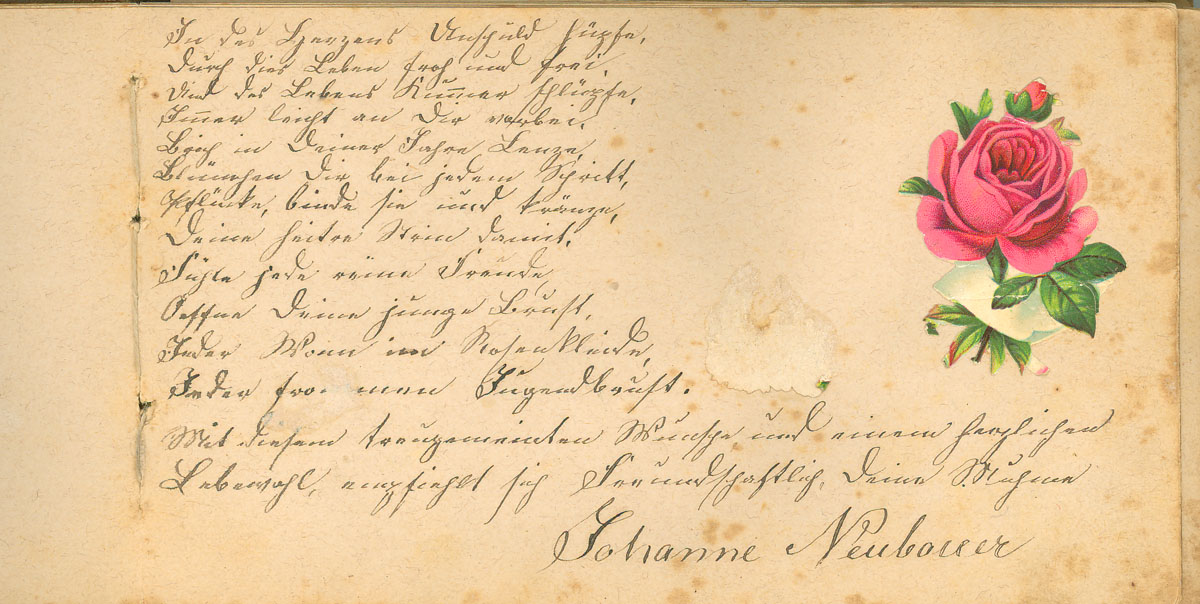 In des Herzens Unschuld hüpfe,
Durch dies Leben froh und frei,
Und des Lebens Kum̅er schlüpfe,
Im̅er leicht an Dir vorbei.
Brich in Deiner Jahre Lenze,
Blümchen Dir bei jedem Schritt,
Pflücke, binde sie und kränze,
Deine heitre Stirn damit.
Fühle jede reine Freude,
Oeffne Deine junge Brust,
Jeder Wonn im Rosenkleide,
Jeder from men Jugendbrust.
Mit diesem treugemeinten Wunsche und einem herzlichen
Lebewohl, empfiehlt sich Freundschaftlich, Deine Muhme
Johanne Neubauer